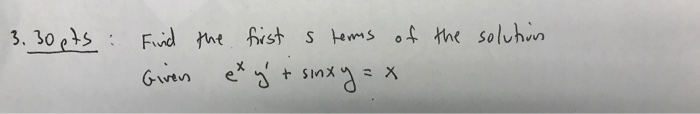 3. 30 pts : Find the first 5 terms of the solution
Given e^x y' + sinx y = x